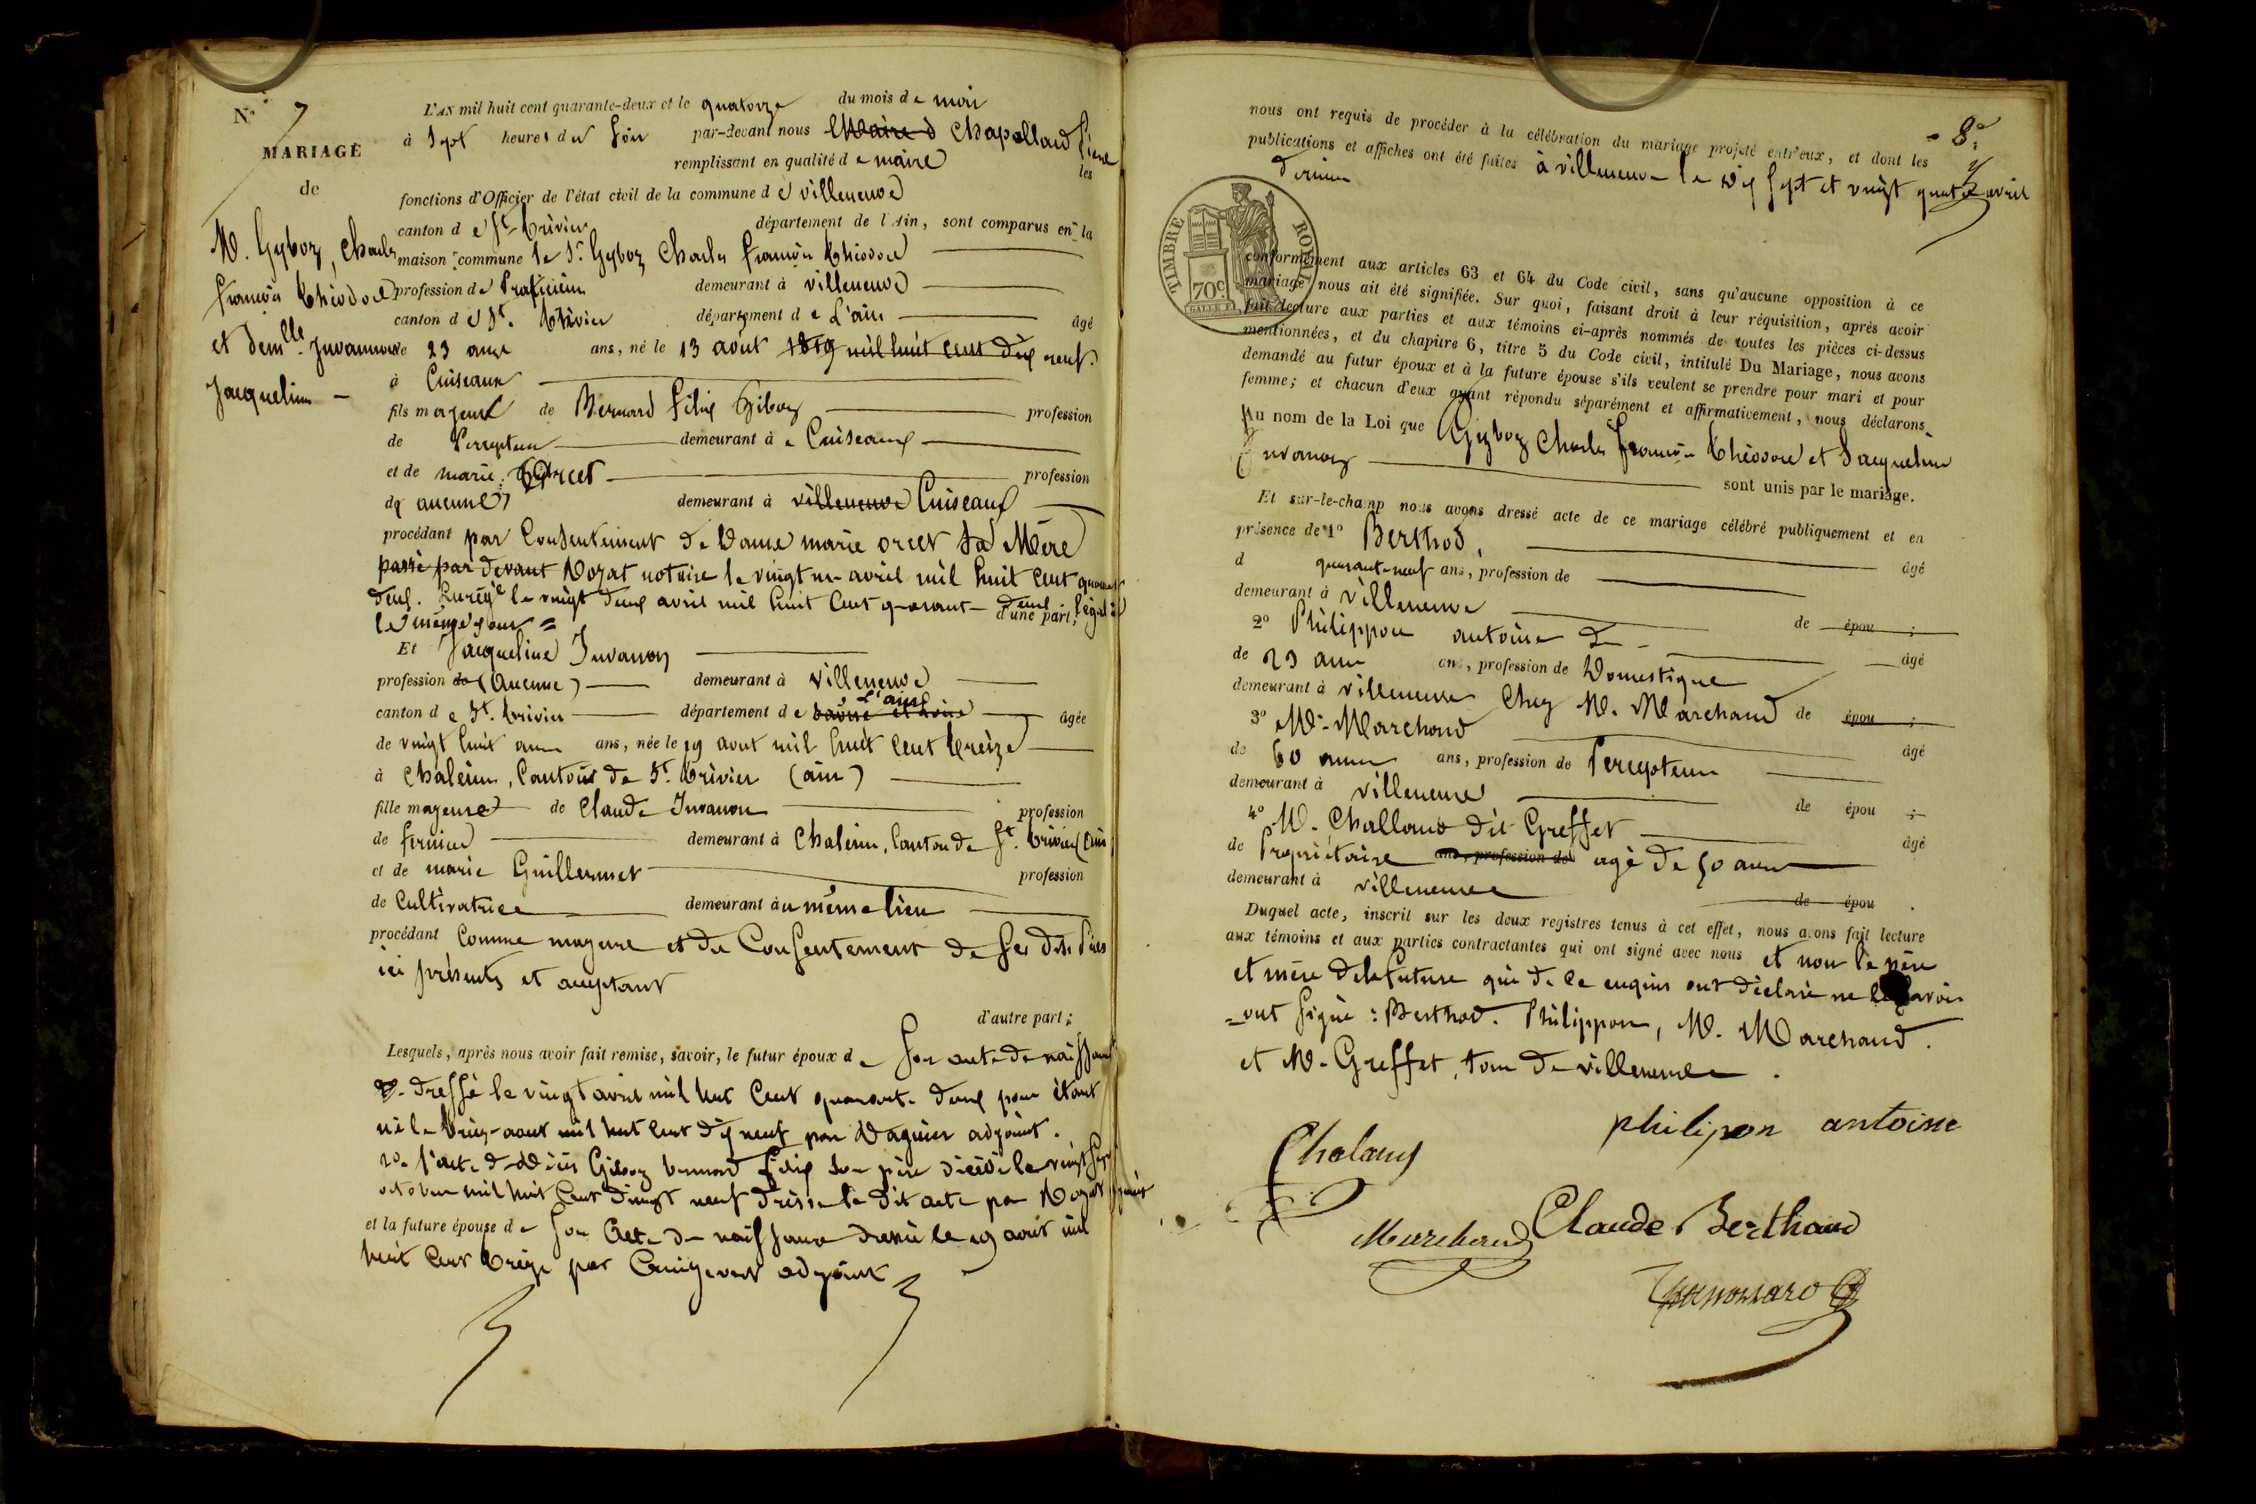 N.° 7
MARIAGE
de
M. Gyboz, Charles
françois théodore
et dem.lle Juvanon
Jacqueline —
L'AN mil huit cent quarante-deux et le quatorze du mois de mai
à sept heures du soir par-devant nous Maire d Chapolland Pierre
remplissant en qualité de maire les
fonctions d'Officier de l'état civil de la commune de villeneuve
canton de St. trivier département de l'Ain, sont comparus en la
maison commune le Sr. Gyboz Charles françois théodore
profession de Praticien demeurant à villeneuve
canton de St. trivier département de L'ain âgé
de 23 ans ans, né le 13 aout 1819 mil huit cent dix neuf.
à Cuiseaux
fils majeur de Bernard félix Giboz profession
de Percepteur demeurant à Cuiseaux
et de marie Orcet profession
de aucune demeurant à villeneuve Cuiseaux
procédant par Consentement de Dame marie orcet sa Mère
passé par devant notaire le vingt un avril mil huit cent quarante
deux. le vingt deux avril mil huit cent quarante deux
le même jour = d'une part;
Et Jacqueline Juvanon
profession de (Aucune) demeurant à villeneuve
canton de St. trivier département de L'ain âgée
de vingt huit ans ans, née le 19 aout mil huit cent treize
à Chaleins, Canton de St. trivier (ain)
fille majeure de Claude Juvanon profession
de fermier demeurant à Chaleins, Canton de St. trivier (ain)
et de marie Guillermet profession
de Cultivatrice demeurant au même lieu
procédant Comme majeure et du Consentement de ses dits Père
ici présents et acceptant
d'autre part;
Lesquels, après nous avoir fait remise, savoir, le futur époux de son acte de naissance
dressé le vingt avril mil huit cent quarante deux pour étant
né le treize aout mil huit cent dix neuf par adjoint.
2° l'acte de décès Giboz bernard félix son père décédé le vingt sept
octobre mil huit cent vingt neuf dressé le dit acte par
et la future épouse de son acte de naissance dressé le 19 aout mil
huit cent treize par adjoint
- 8e
nous ont requis de procéder à la célébration du mariage projeté entr'eux, et dont les
publications et affiches ont été faites à villeneuve le dix sept et vingt quatre avril
dernier
TIMBRE ROYAL
70c
conformément aux articles 63 et 64 du Code civil, sans qu'aucune opposition à ce
mariage nous ait été signifiée. Sur quoi, faisant droit à leur réquisition, après avoir
fait lecture aux parties et aux témoins ci-après nommés de toutes les pièces ci-dessus
mentionnées, et du chapitre 6, titre 5 du Code civil, intitulé Du Mariage, nous avons
demandé au futur époux et à la future épouse s'ils veulent se prendre pour mari et pour
femme; et chacun d'eux ayant répondu séparément et affirmativement, nous déclarons,
Au nom de la Loi que Gyboz Charles françois théodore et Jacqueline
Juvanon
sont unis par le mariage.
Et sur-le-champ nous avons dressé acte de ce mariage célébré publiquement et en
présence de 1° Berthod, âgé
d quarante-neuf ans, profession de
demeurant à villeneuve de épou ;
2° Philippon antoine âgé
de 23 ans ans, profession de Domestique
demeurant à villeneuve chez M. Marchand de épou ;
3° M. Marchand âgé
de 60 ans ans, profession de Percepteur
demeurant à villeneuve de épou ;
4° M. Challand dit Greffet âgé
de Propriétaire ans, profession de agé de 50 ans
demeurant à villeneuve de épou .
Duquel acte, inscrit sur les deux registres tenus à cet effet, nous avons fait lecture
aux témoins et aux parties contractantes qui ont signé avec nous et non le père
et mère de la future qui de ce enquis ont déclaré ne le savoir
= ont signé : Berthod. Philippon, M. Marchand.
et M. Greffet, tous de villeneuve .
philipon antoine
Chaland
Marchand
Claude Berthaud